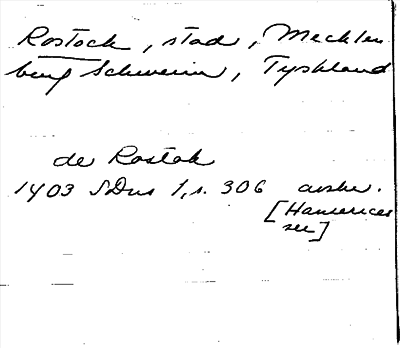 Rostock, stad, Mecklen
burg Schwerin, Tyskland
de Rostok
1403 SDns 1, s. 306 avskr.
[Hanserices
ser]